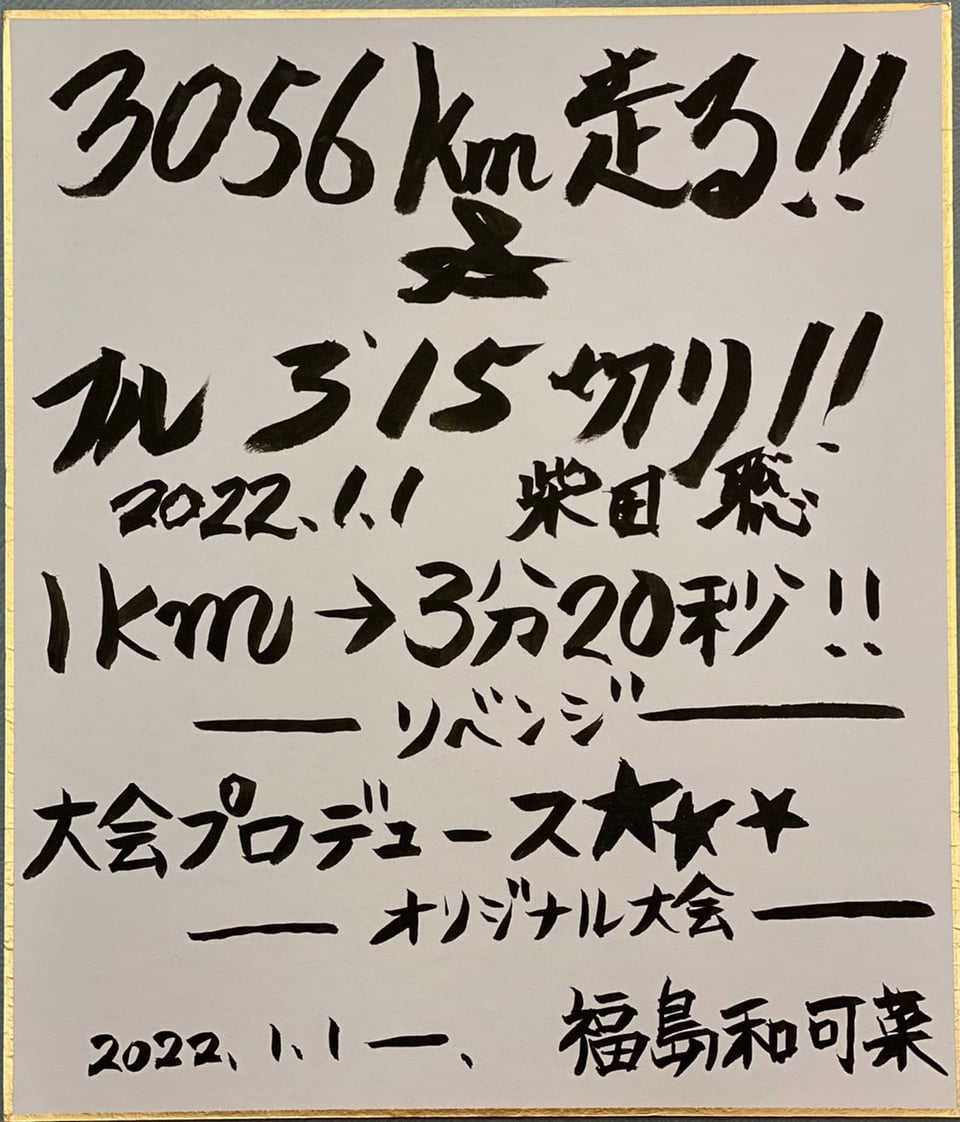 3056km走る!!
フル 3°15切り!!
2022.1.1 柴田 聡
1km→3分20秒!!
― リベンジ ―
大会プロデュース★★★
― オリジナル大会 ―
2022.1.1 ―. 福島和可菜